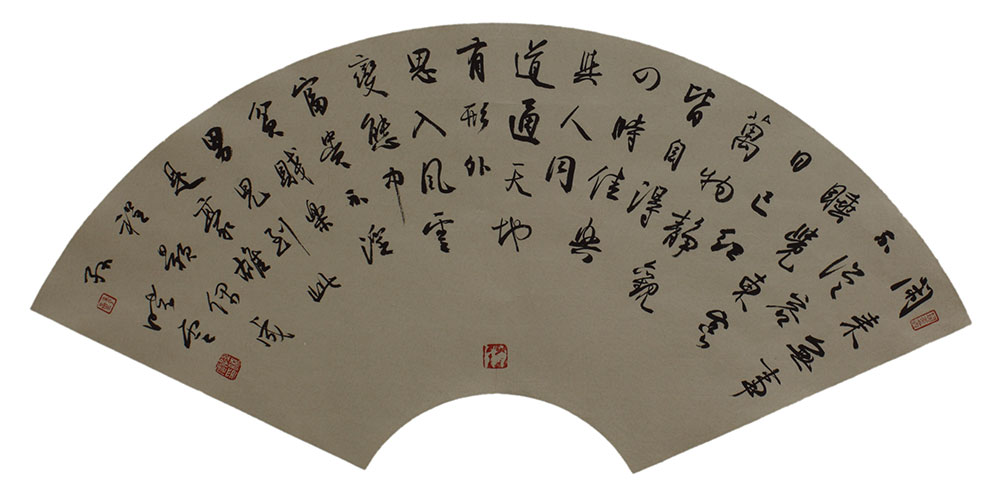 閒来無事
不從容
睡覺東窗
日已紅
萬物静觀
皆自得
四時佳興
與人同
道通天地
有形外
思入風雲
變態中
富貴不淫
貧賤樂
男兒到此
是豪雄
程顥偶成
孙曉雲